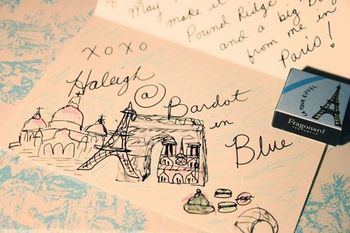 May
make it
Pound Ridge
and a big
from me in
Paris!
XOXO
Haleigh
@
Bardot
in
Blue
TOUR EIFFEL
Fragonard